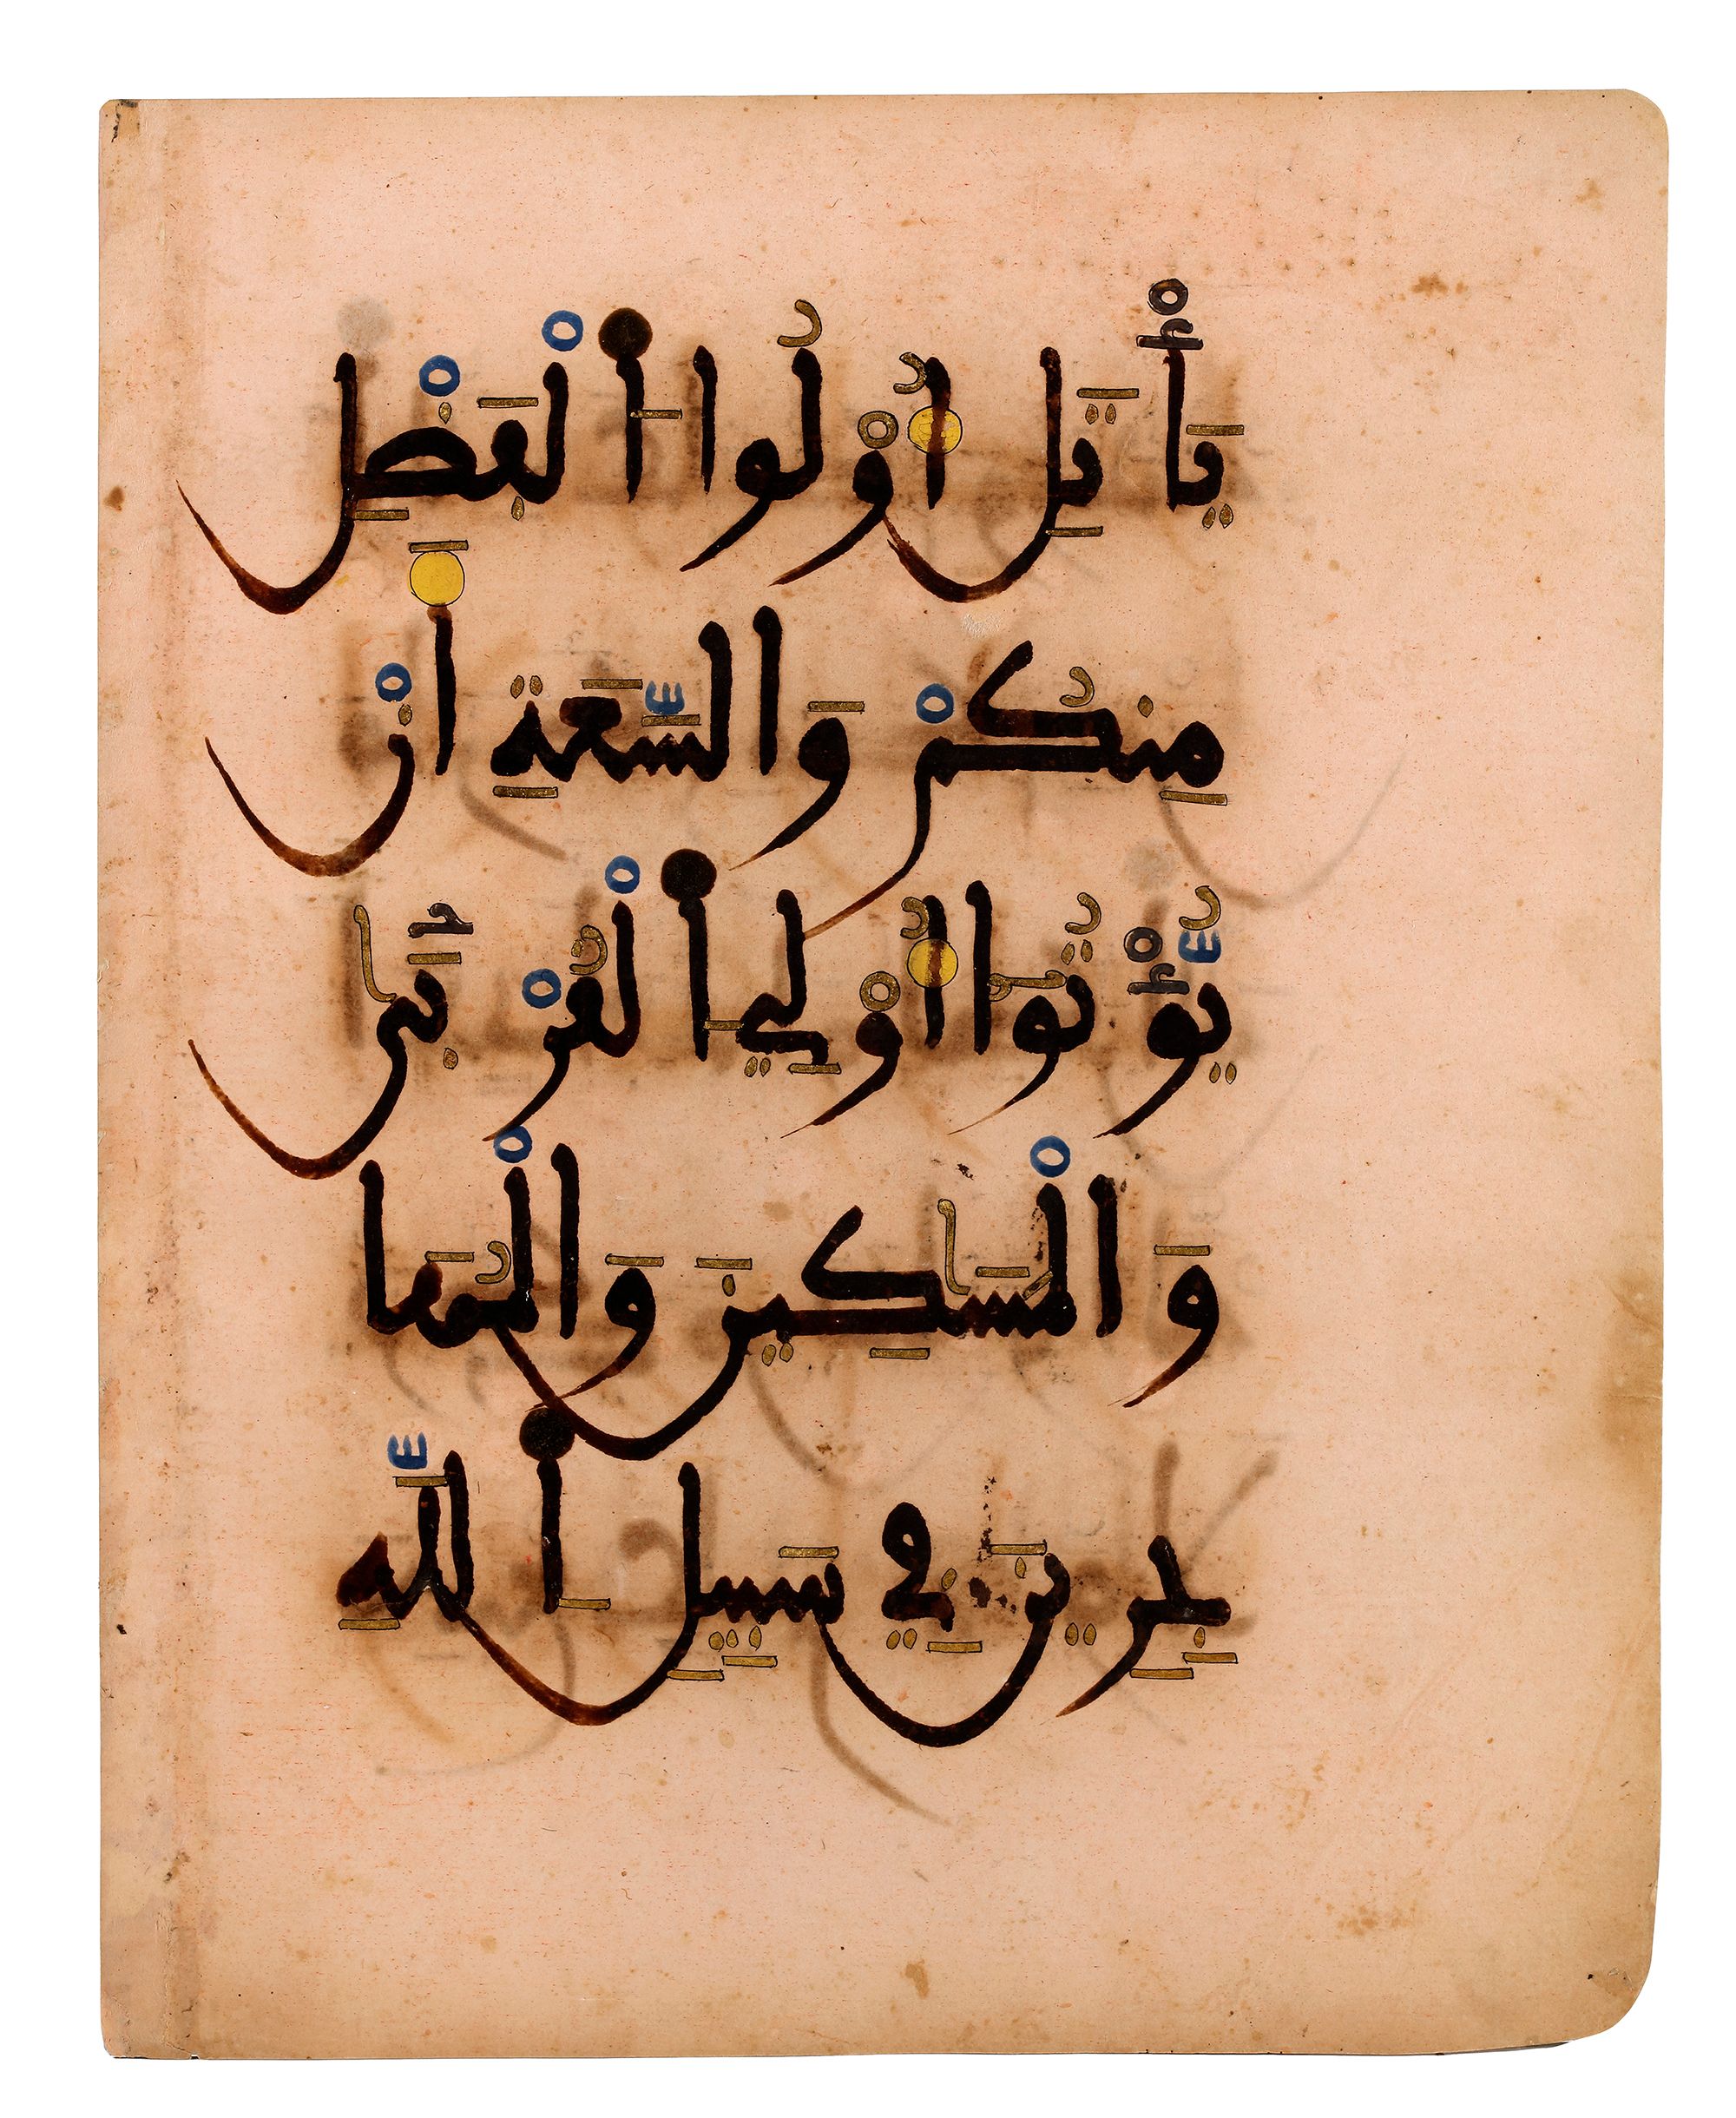 يَأْتَلِ أُوْلُواْ اَ۬لْفَضْلِ
مِنكُمْ وَالسَّعَةِ أَنْ
يُّؤْتُواْ أُوْلِے اِ۬لْقُرْب۪ىٰ
وَالْمَسَٰكِينَ وَالْمُهَٰ
جِرِينَ فِے سَبِيلِ اِ۬للَّهِ